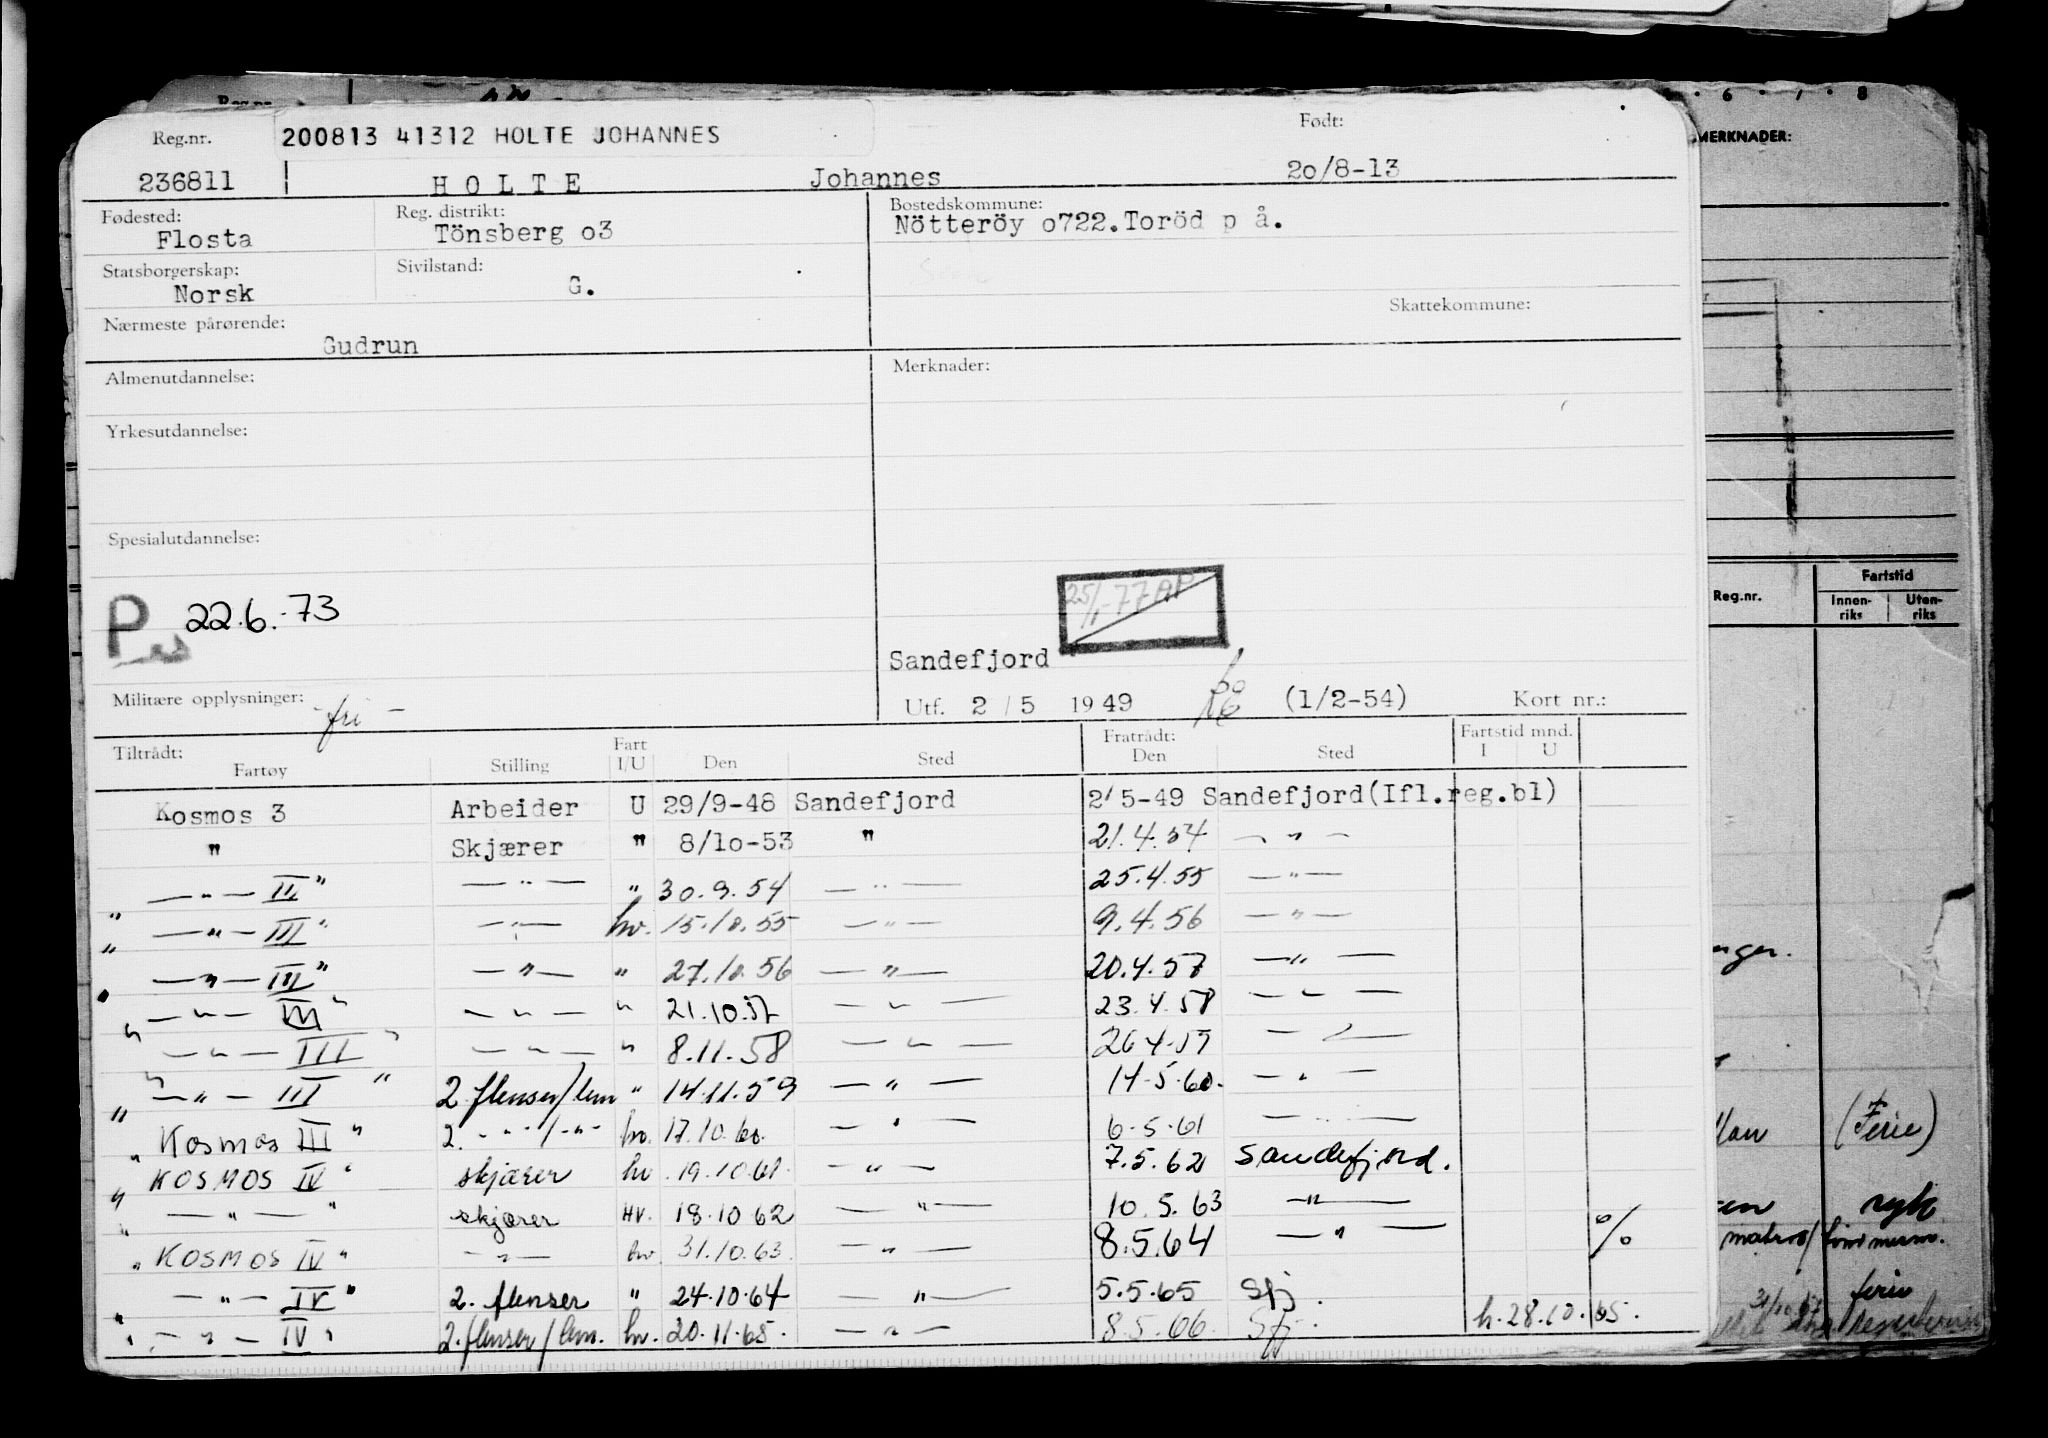 Reg.nr. 200813 41312 HOLTE JOHANNES Født:
236811 HOLTE Johannes 2o/8-13
Fødested: Reg. distrikt: Bostedskommune:
Flosta Tönsberg o3 Nötteröy o722.Toröd p å.
Statsborgerskap: Sivilstand:
Norsk G.
Skattekommune:
Nærmeste pårørende:
Gudrun
Almenutdannelse: Merknader:
Yrkesutdannelse:
Spesialutdannelse:
P 22.6.-73
25/1-77 AP
Sandefjord
Militære opplysninger: -fri- Utf. 2 / 5 1949 (1/2-54) Kort nr.:
Tiltrådt: Fart Fratrådt: Fartstid mnd.
Fartøy Stilling I/U Den Sted Den Sted I U
Kosmos 3 Arbeider U 29/9-48 Sandefjord 2/5-49 Sandefjord(Ifl.reg.bl)
" Skjærer " 8/1o-53 " 21.4.54 — " —
— " — II" — " — " 30.9.54 — " — 25.4.55 — " —
" — " — III" — " — hv. 15.10.55 — " — 9.4.56 — " —
" — " — III" — " — " 27.10.56 — " — 20.4.57 — " —
" — " — III" — " — " 21.10.57 — " — 23.4.58 — " —
" — " — III" — " — " 8.11.58 — " — 26.4.59 — " —
" — " — III" 2. flenser/lem " 14.11.59 — " — 14.5.60. — " —
" Kosmos III" 2. - " - / - " - hv. 17.10.60. — " — 6.5.61 — " —
" KOSMOS IV" skjærer hv 19.10.61. — " — 7.5.62 Sandefjord.
" — " — " skjærer HV. 18.10.62 — " — 10.5.63 — " —
" KOSMOS IV" — " — hv. 31.10.63. — " — 8.5.64 — " — %
" — " — IV" 2. flenser " 24.10.64 — " — 5.5.65 Sfj.
" — " — IV" 2. flenser/lem. hv. 20.11.65. — " — 8.5.66. Sfj. h.28.10.65.
6 . 7 . 8
MERKNADER:
Reg.nr. Fartstid
Innen-riks Uten-riks
(Ferie)
matros/tømmerm.
ferie